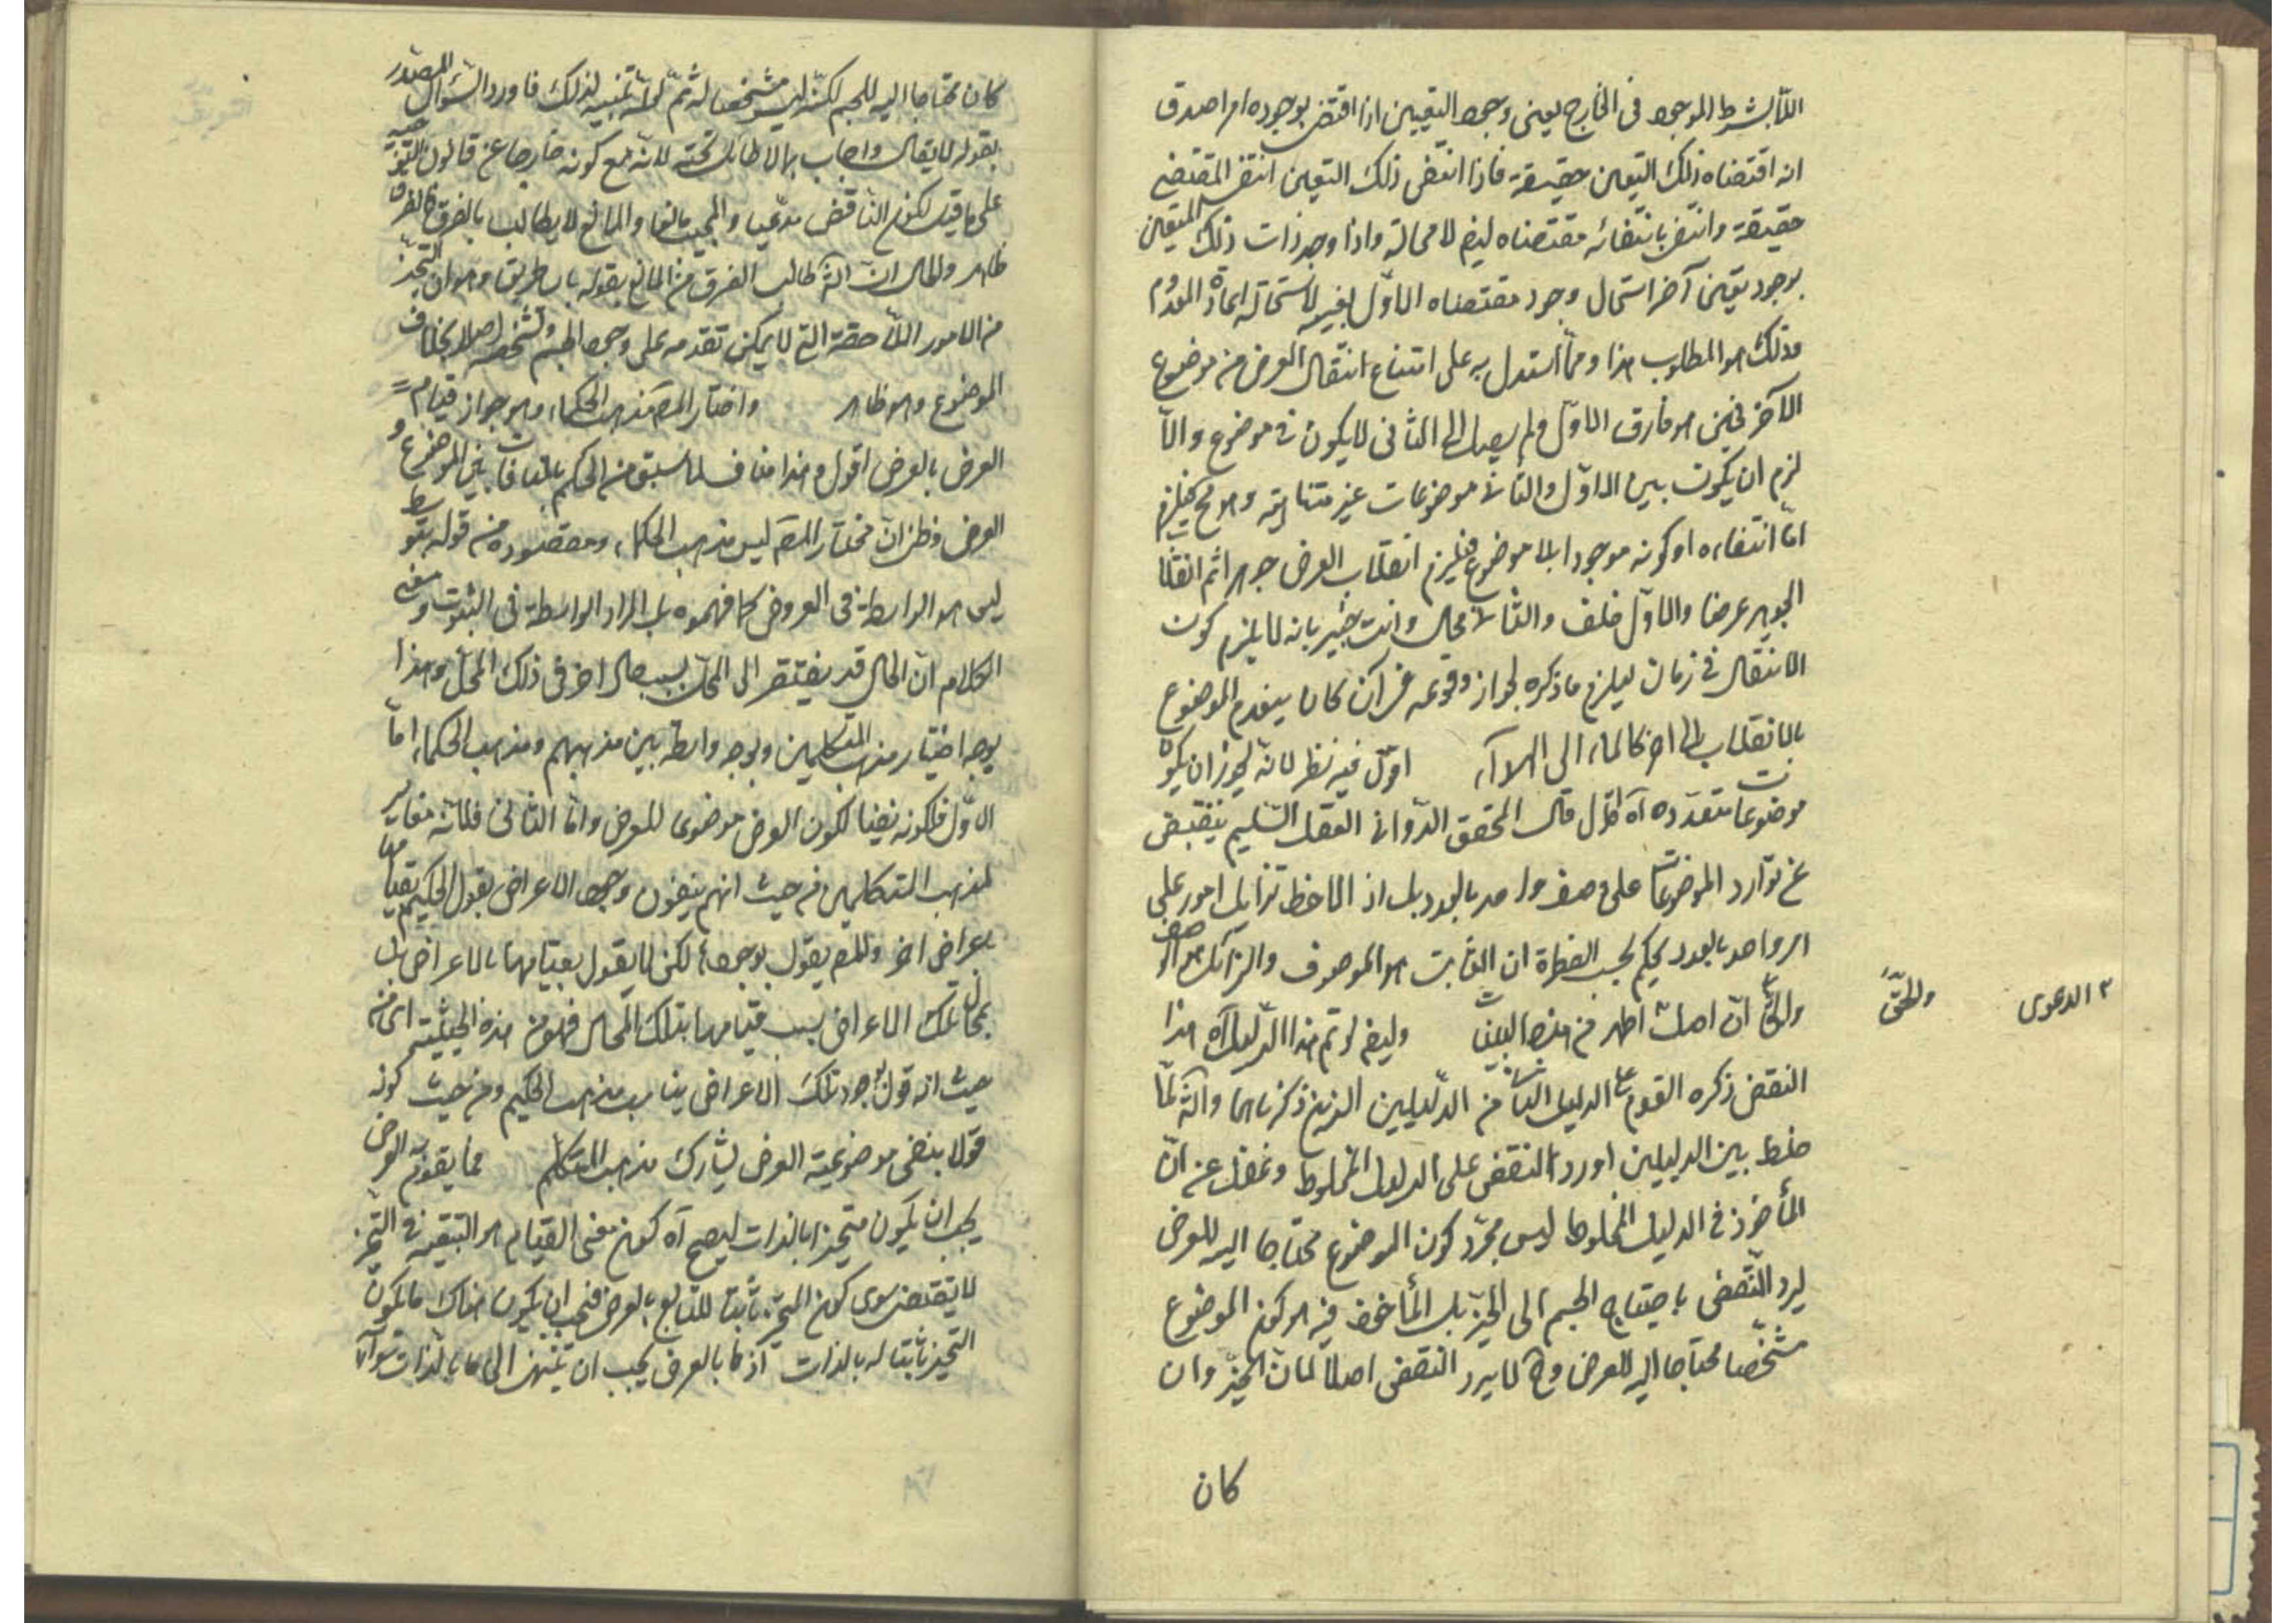 اللابشرط الموجود فى الخارج يعنى وجود التعيين اذا اقتضى بوجوده امرا صدق
انه اقتضاه ذلك التعين حقيقة فاذا انتفى ذلك التعين انتفى المقتضى
حقيقة وانتفى بانتفائه مقتضاه ايضا لا محالة واذا وجد ذات ذلك المتعين
بوجود تعين آخر استحال وجود مقتضاه الاول بعينه لاستحالة اعادة المعدوم
وذلك هو المطلوب هذا ومما استدل به على امتناع انتقال العرض من موضوع
الآخر فحين هو فارق الاول ولم يصل الى الثانى لا يكون فى موضوع والا
لزم ان يكون بين الاول والثانى موضوعات غير متناهية وهو مح فيلزم
اما انتفاءه او كونه موجودا بلا موضوع فيلزم انقلاب العرض جوهرا ثم انقلاب
الجوهر عرضا والاول خلف والثانى محال وانت خبير بانه لا يلزم كون
الانتقال فى زمان ليلزم ما ذكره لجواز وقوعه فى آن كان ينعدم الموضوع
بالانقلاب الى آخر كالماء الى الهواء آه اقول فيه نظر لانه يجوز ان يكون
موضوعات متعدده آه اقول قال المحقق الدوانى العقل السليم ينقبض
عن توارد الموضوعات على وصف واحد بالعدد بل اذا لاحظ تزايل امور على
امر واحد بالعدد يحكم بحسب الفطرة ان الثابت هو الموصوف والزائل هو الوصف
والحق ان اصل الدعوى اظهر من هذه البينات وايضا لو تم هذا الدليل آه هذا
النقض ذكره القوم على الدليل الثانى من الدليلين الذين ذكرناهما والشه لما
خلط بين الدليلين اورد النقض على الدليل المخلوط وغفل عن ان
المأخوذ فى الدليل المخلوط ليس مجرد كون الموضوع محتاجا اليه للعرض
ليرد النقض باحتياج الجسم الى الحيز بل المأخوذ فيه هو كون الموضوع
مشخصا محتاجا اليه للعرض وح لا يرد النقض اصلا لان الحيز وان
كان
والحق
٢ الدعوى
كان محتاجا اليه للجسم لكنه ليس مشخصا له ثم تنبيه لذلك فاورد السؤال المصدر
بقوله لا يقال واجاب بما لا طائل تحته لانه مع كونه خارجا عن قانون التوجيه
على ما قيل لكون الناقض مدعيا والمجيب مانعا والمانع لا يطالب بالفرق فالفرق
ظاهر والحال ان الشه طالب الفرق من المانع بقوله باى طريق وهو ان التحيز
من الامور اللاحقة التى لا يمكن تقدمه على وجود الجسم وتشخصه اصلا بخلاف
الموضوع وهو ظاهر واختار المص مذهب الحكماء وهو جواز قيام
العرض بالعرض اقول وهذا مناف لما سبق من الحكم بالمنافات بين الموضوع و
العرض وظنى ان مختار المص ليس مذهب الحكماء ومقصوده من قوله بتوسط
ليس هو الواسطة فى العروض كما فهموه بل المراد الواسطة فى الثبوت ومعنى
الكلام ان الحال قد يفتقر الى المحل بسبب حال اخر فى ذلك المحل وهذا
بوجه اختيار مذهب المتكلمين وبوجه واسطة بين مذهبهم ومذهب الحكماء اما
الاول فلكونه نفيا لكون العرض موضوعا للعرض واما الثانى فلانه مغاير
لمذهب المتكلمين من حيث انهم ينفون وجود الاعراض بقول الحكيم بقيامها
باعراض اخر والمص يقول بوجودها لكن لا يقول بقيامها بالاعراض بل
بمحال تلك الاعراض بسبب قيامها بتلك المحال فهو من هذه الحيثية اى من
حيث انه قول بوجود تلك الاعراض يناسب مذهب الحكيم ومن حيث كونه
قولا بنفى موضوعية العرض يشارك مذهب المتكلم مما يقوم به العرض
يجب ان يكون متحيزا بالذات ليصح آه كون معنى القيام هو التبعية فى التحيز
لا يقتضى سوى كون التحيز ثابتا للتابع بالعرض فيجب ان يكون هناك ما يكون
التحيز ثابتا له بالذات اذ ما بالعرض يجب ان ينتهى الى ما بالذات سواء